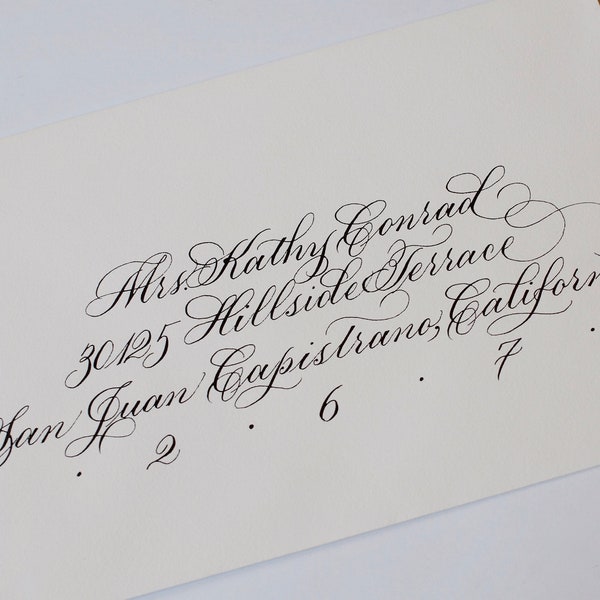 Mrs. Kathy Conrad
30125 Hillside Terrace
San Juan Capistrano, Californ
· 2 · 6 · 7 ·